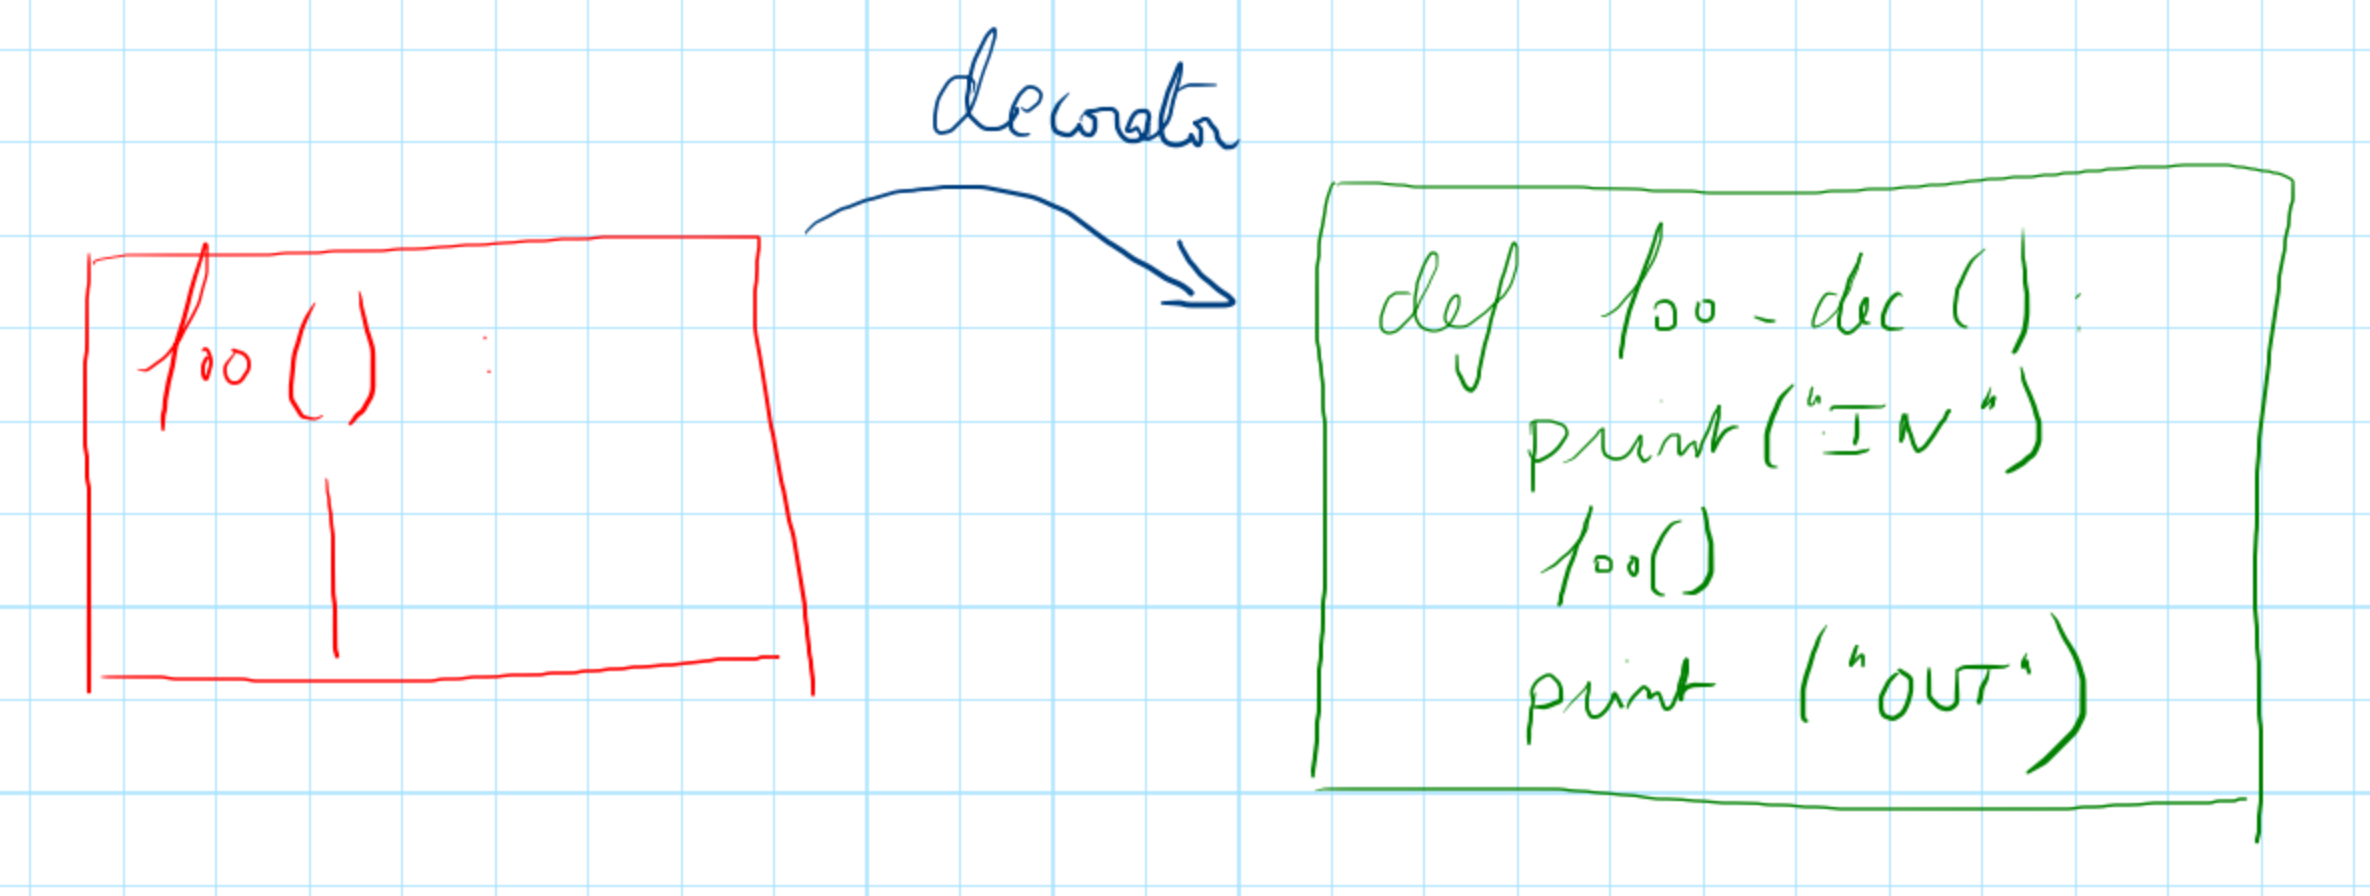 decorator
foo() :
def foo_dec():
print("IN")
foo()
print("OUT")